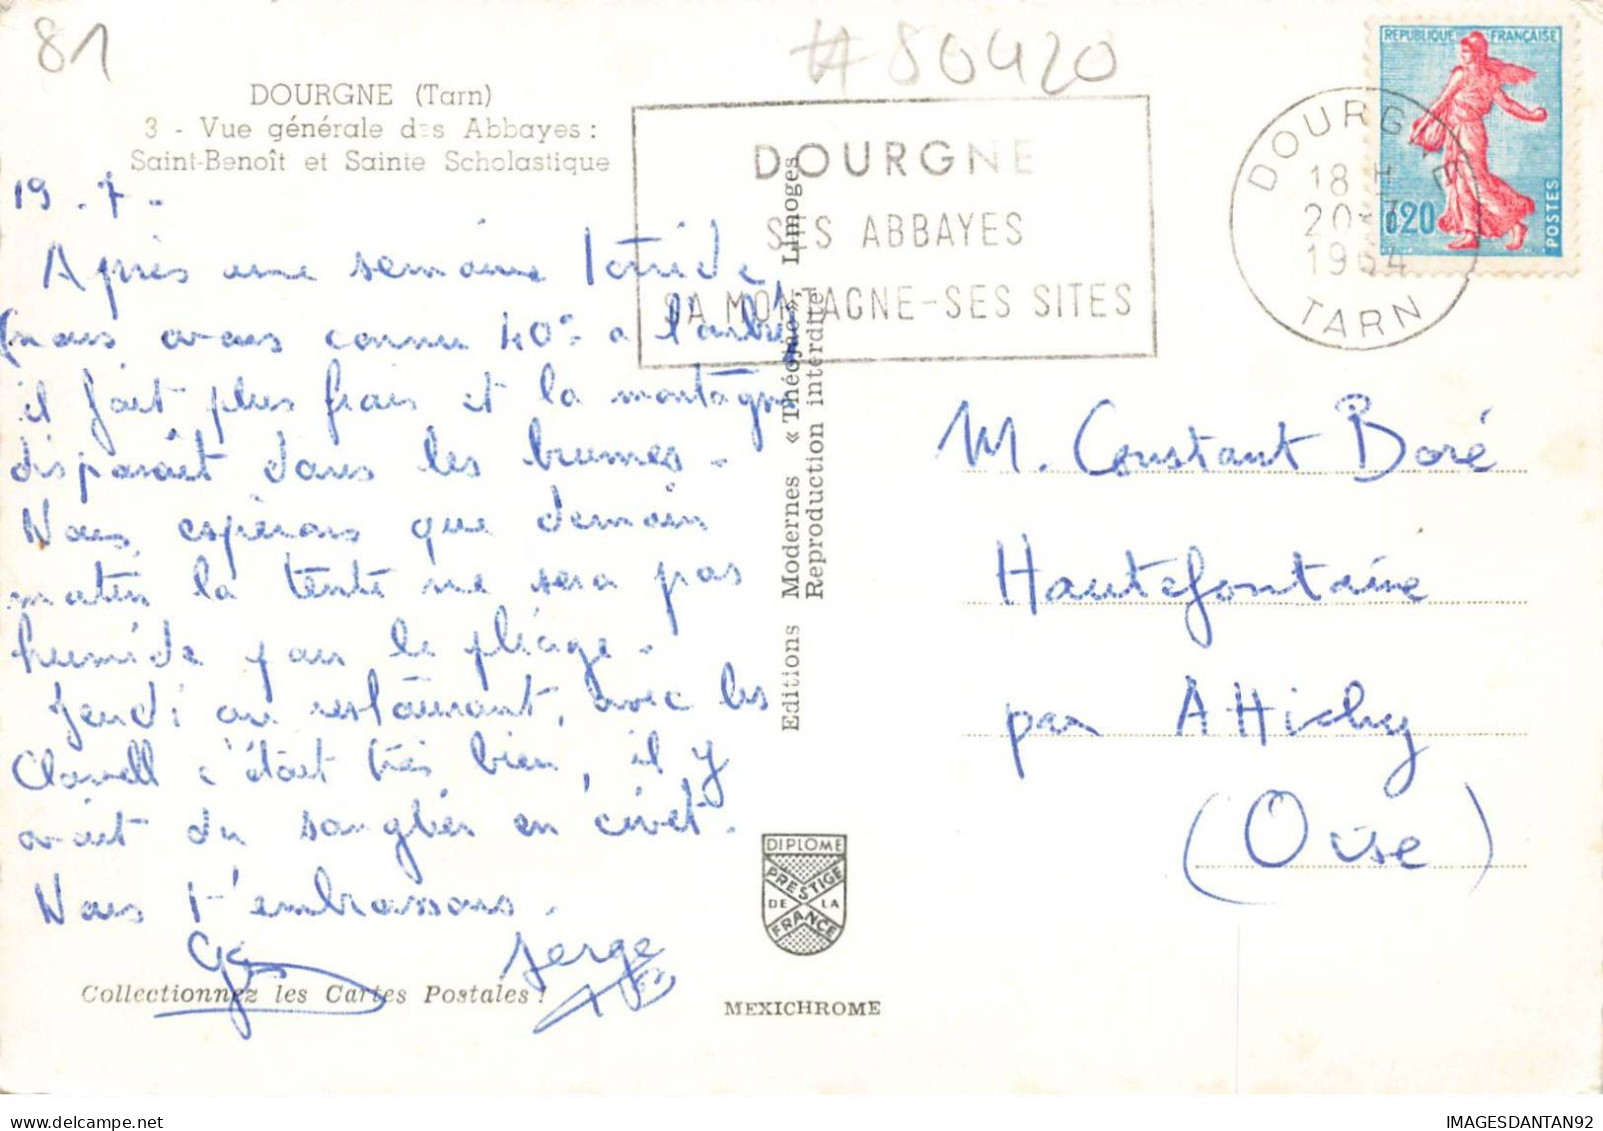 81
# 80420
DOURGNE (Tarn)
3 - Vue générale des Abbayes :
Saint-Benoît et Sainte Scholastique
19 - 7 -
Après une semaine torride
(nous avons connu 40° à l'ombre)
il fait plus frais et la montagne
disparaît dans les brumes -
Nous espérons que demain
matin la tente ne sera pas
humide pour le pliage -
Jeudi au restaurant, avec les
Clavell c'était très bien, il y
avait du sanglier en civet.
Nous t'embrassons -
Serge
Collectionnez les Cartes Postales !
Editions Modernes « Théojac », Limoges
Reproduction interdite
DIPLOME
PRESTIGE
DE LA
FRANCE
MEXICHROME
DOURGNE
SES ABBAYES
SA MONTAGNE-SES SITES
DOURGNE
18 H
20-7
1964
TARN
REPUBLIQUE FRANÇAISE
0,20
POSTES
M. Constant Boré
Hautefontaine
par Attichy
(Oise)
IMAGESDANTAN92